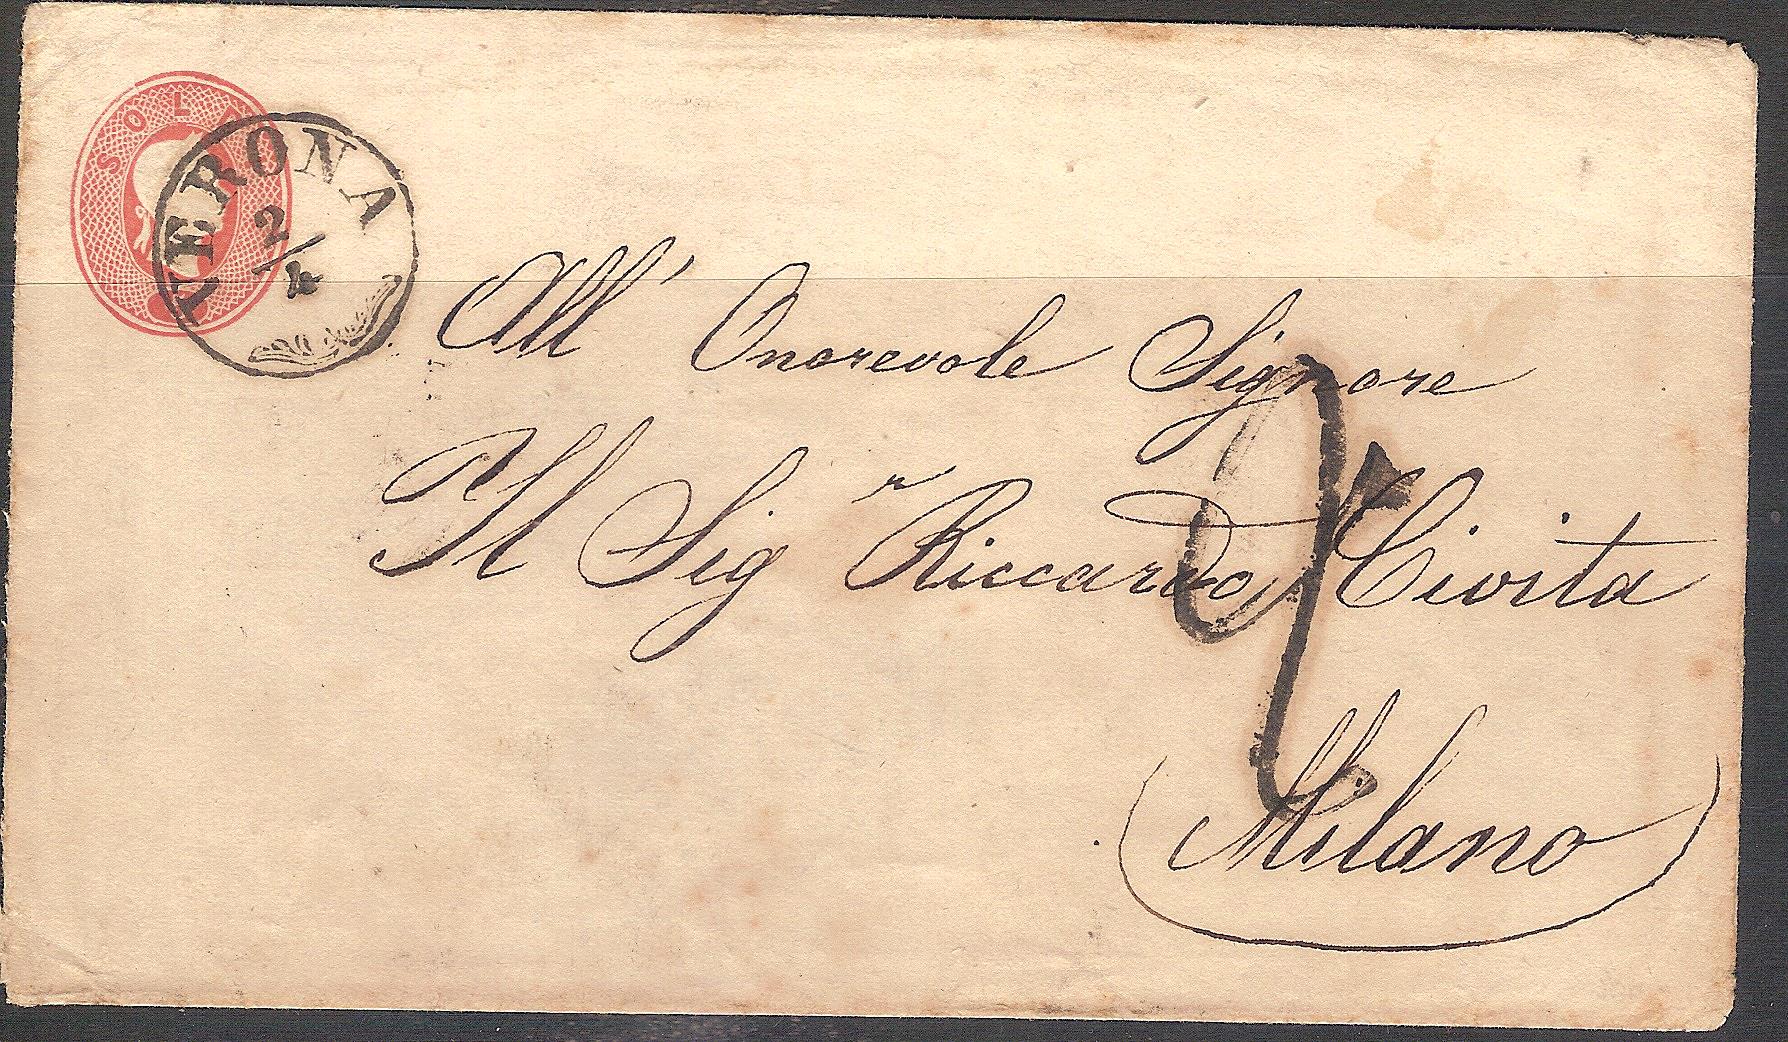 SOLDI
VERONA
2/4
All' Onorevole Signore
Il Sigr Riccardo Civita
2
Milano